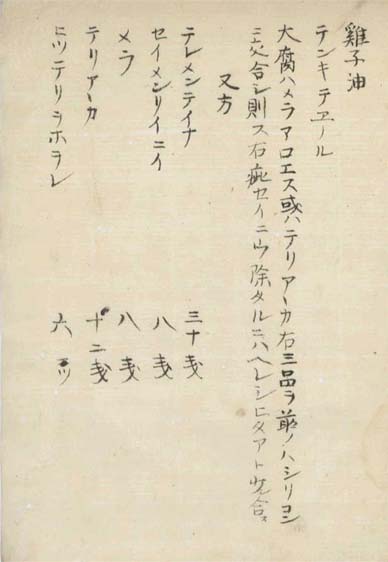 雞子油
テンキテヱール
大腐ハメラアロエス或ハテリアーカ右三品ヲ前ノハシリヨン
ニ交合シ則ス石疵セイニウ除タルニハヘレシヒタアト交合ス
又方
テレメンテイナ 三十戔
セイメンリイニイ 八戔
メラ 八戔
テリアーカ 十二戔
ヒツテリヲホラレ 六ツ